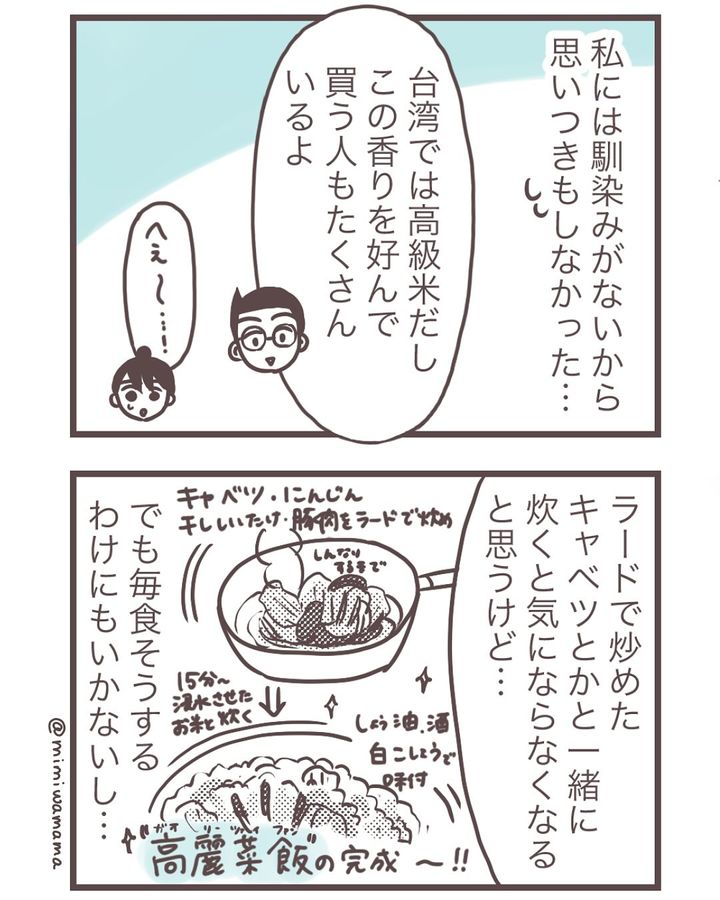 私には馴染みがないから
思いつきもしなかった…
台湾では高級米だし
この香りを好んで
買う人もたくさん
いるよ
へぇ〜……!
ラードで炒めた
キャベツとかと一緒に
炊くと気にならなくなる
と思うけど…
キャベツ・にんじん
干ししいたけ・豚肉をラードで炒め
しんなり
するまで
15分〜
浸水させた
お米と炊く
しょう油、酒
白こしょうで
味付
ガオ リー ツァイ ファン
"高麗菜飯"の完成〜!!
でも毎食そうする
わけにもいかないし…
@mimiwamama